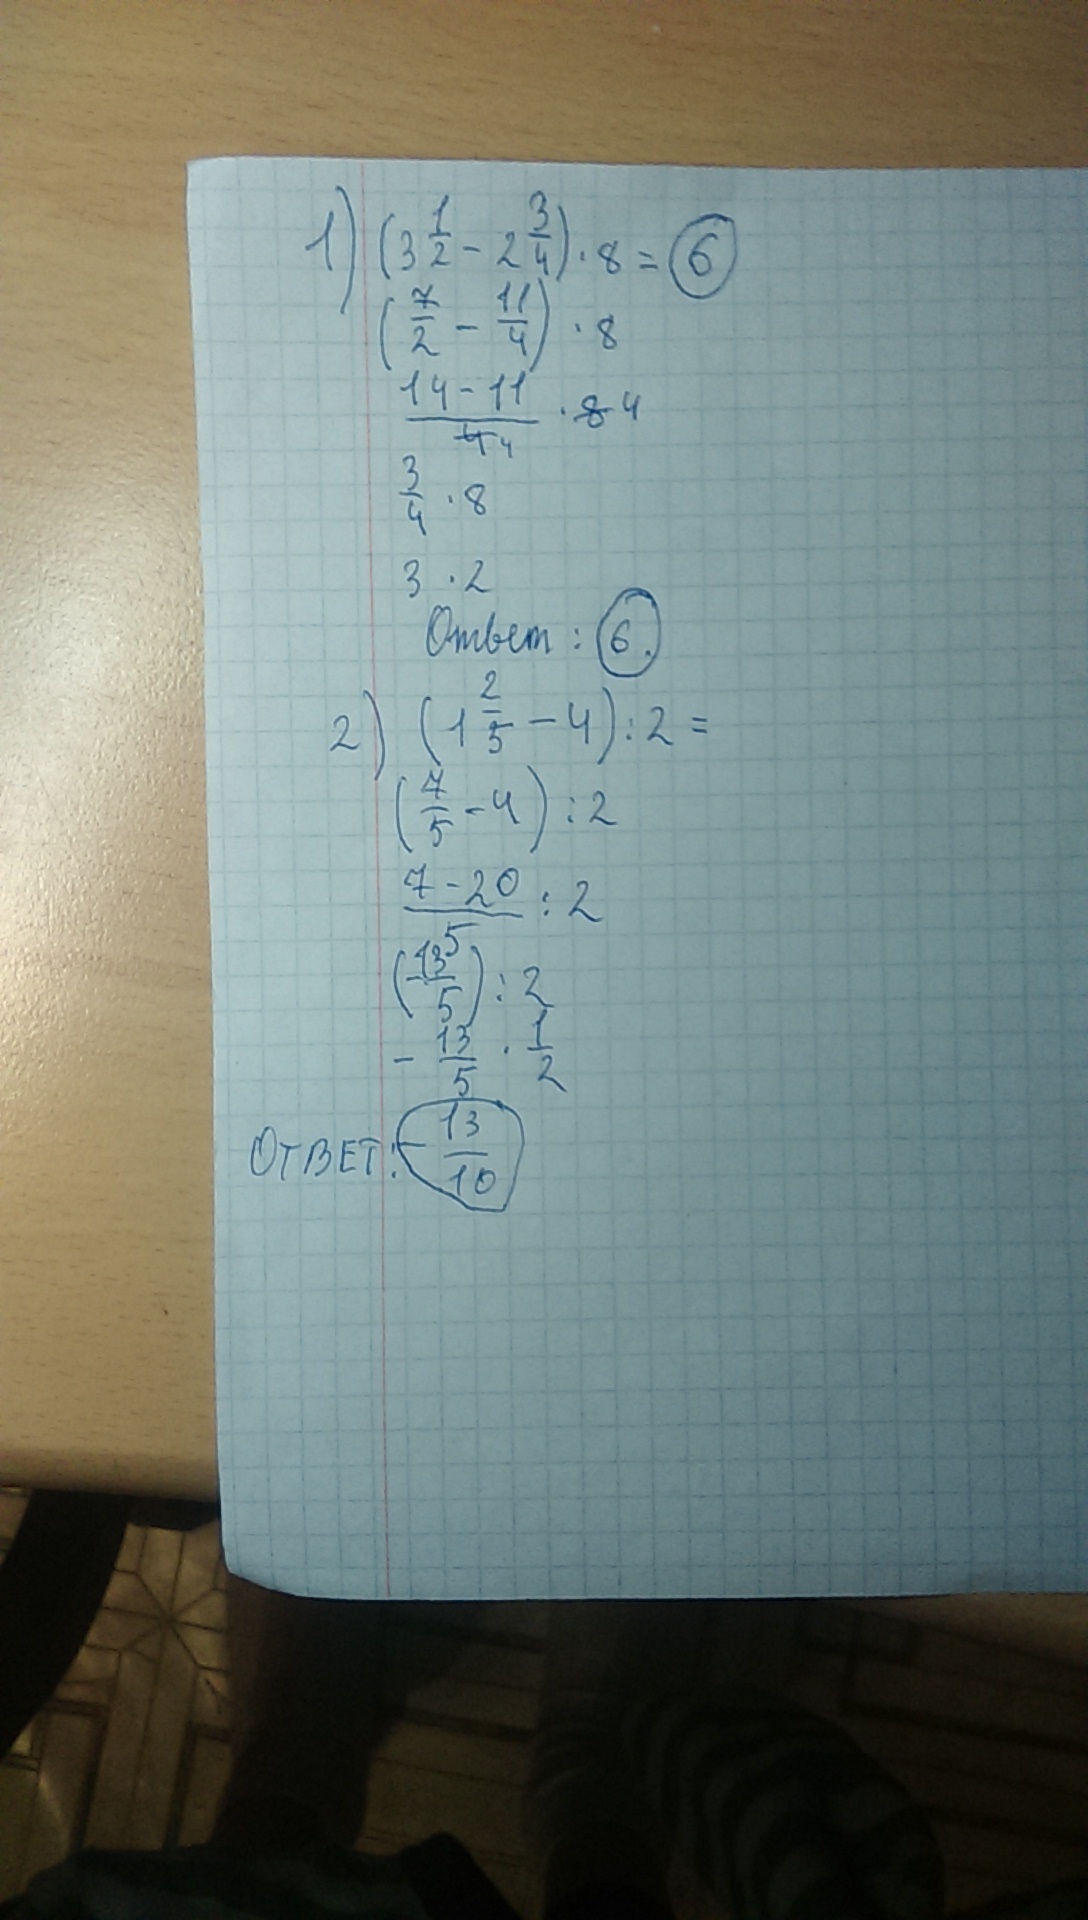 1) (3 1/2 - 2 3/4) · 8 = 6
(7/2 - 11/4) · 8
14 - 11 / 4 · 8 4
3/4 · 8
3 · 2
Ответ: 6.
2) (1 2/5 - 4) : 2 =
(7/5 - 4) : 2
7 - 20 / 5 : 2
(-13/5) : 2
- 13/5 · 1/2
ОТВЕТ: - 13/10